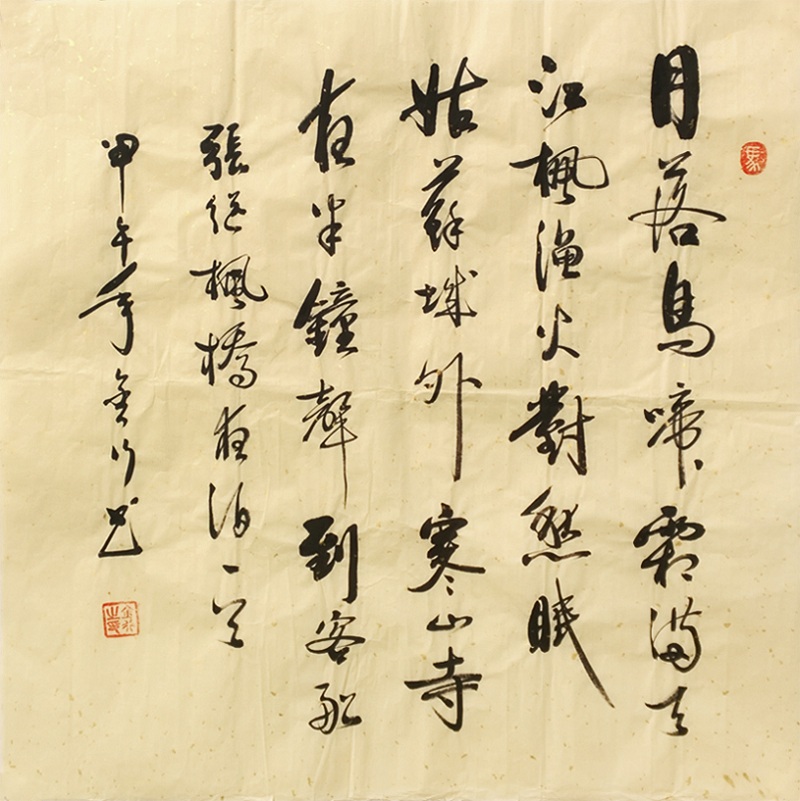 馬
月落烏啼霜滿天
江楓漁火對愁眠
姑蘇城外寒山寺
夜半鐘聲到客船
張繼楓橋夜泊一首
甲午年金書